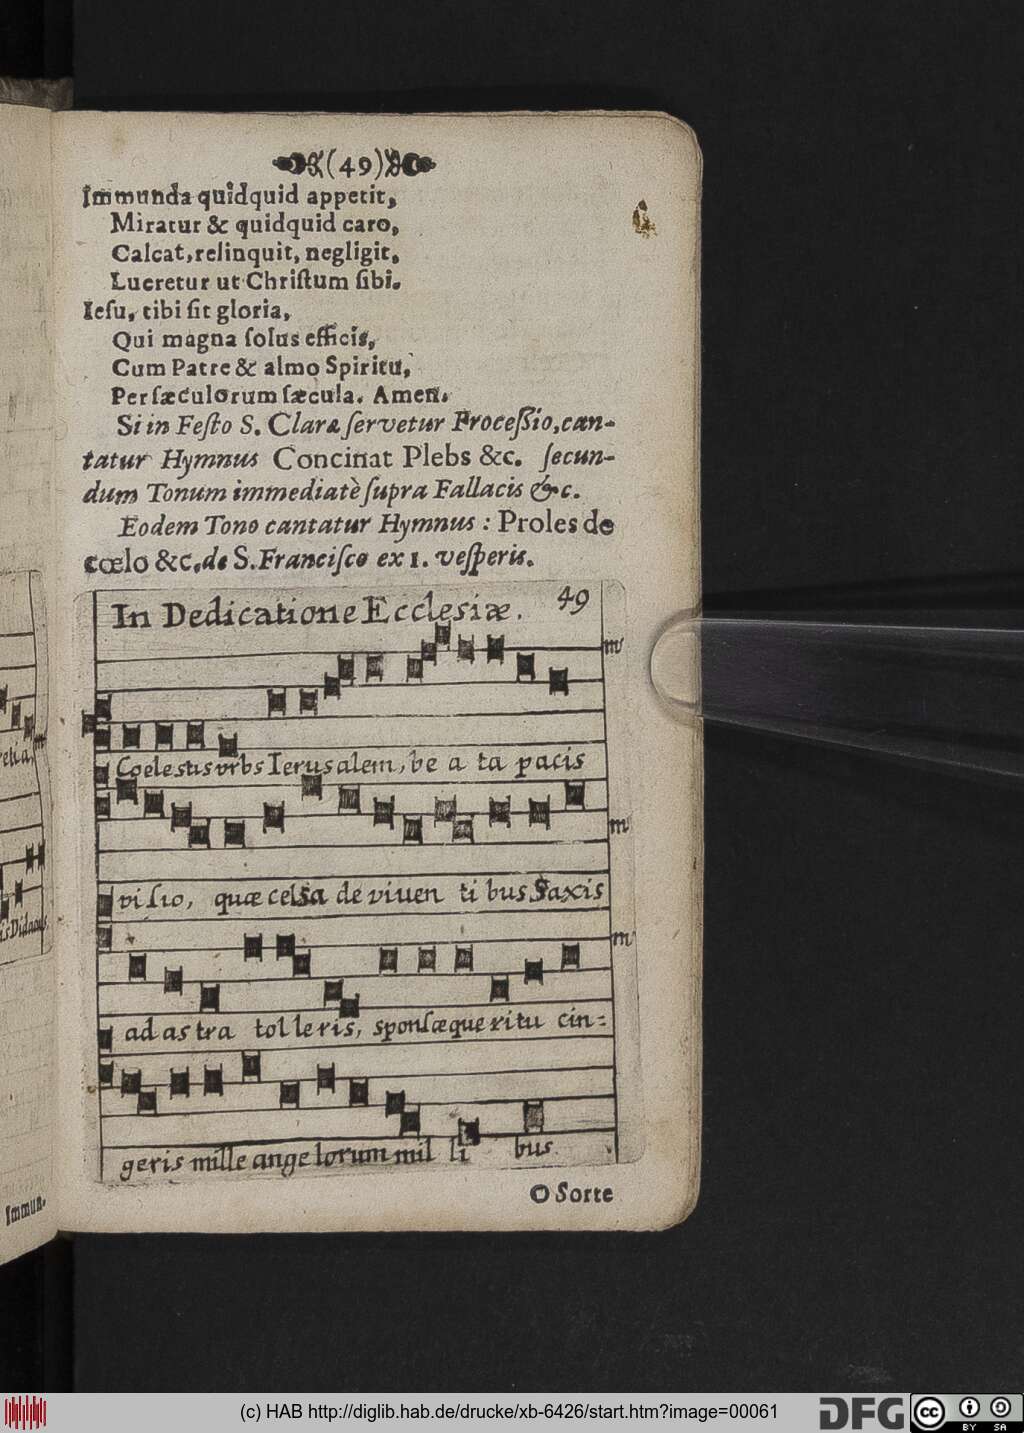 (49)
Immunda quidquid appetit,
Miratur & quidquid caro,
Calcat, relinquit, negligit,
Lucretur ut Chriſtum ſibi.
Ieſu, tibi ſit gloria,
Qui magna ſolus efficis,
Cum Patre & almo Spiritu,
Per ſæculorum ſæcula. Amen.
Si in Feſto S. Claræ ſervetur Proceſſio, can-
tatur Hymnus Concinat Plebs &c. ſecun-
dum Tonum immediatè ſupra Fallacis &c.
Eodem Tono cantatur Hymnus: Proles de
cœlo &c. de S. Franciſco ex 1. veſperis.
In Dedicatione Ecclesiæ. 49
Coelestis vrbs Ierusalem, be a ta pacis
viſio, quæ celsa de viuen ti bus Saxis
ad as tra tol le ris, sponſæque ritu cin=
geris mille ange lorum mil li bus.
O Sorte
etia,
is Didacus
Immun.
(c) HAB http://diglib.hab.de/drucke/xb-6426/start.htm?image=00061
DFG
cc
BY SA